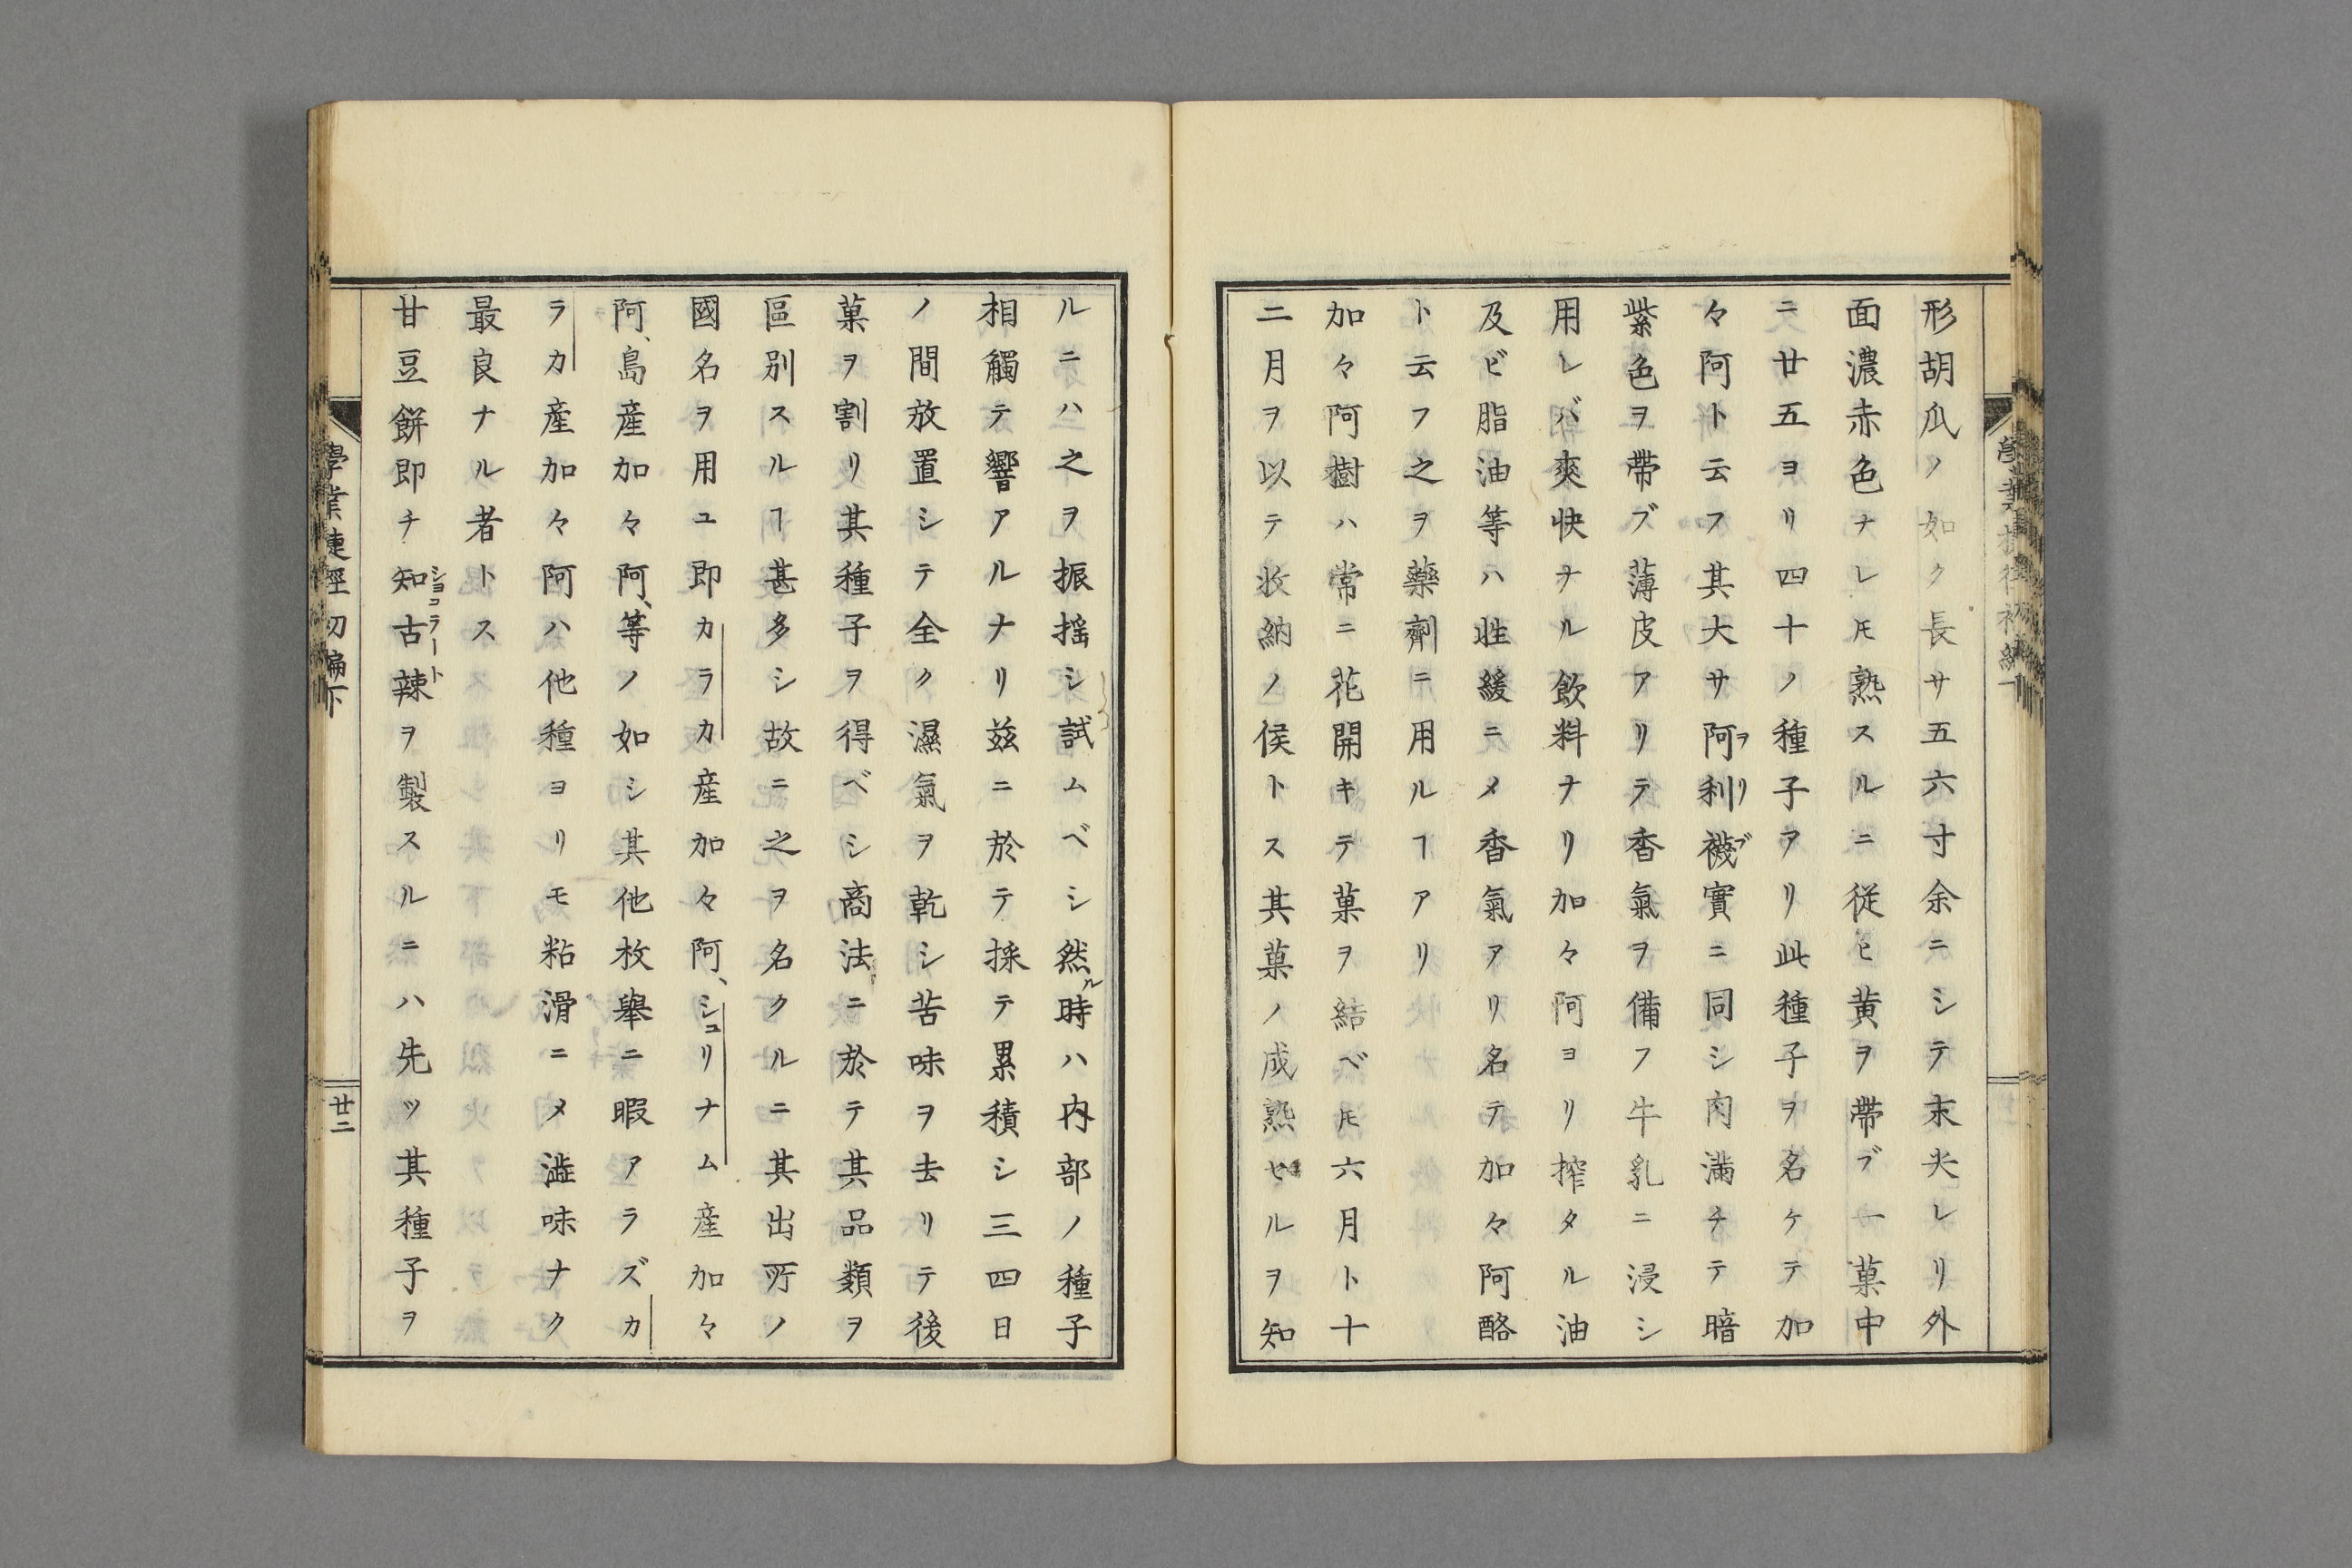 形胡瓜ノ如ク長サ五六寸余ニシテ末尖レリ外
面濃赤色ナレ𪜈熟スルニ従ヒ黄ヲ帶ブ一菓中
ニ廿五ヨリ四十ノ種子アリ此種子ヲ名ケテ加
々阿ト云フ其大サ阿利襪實ニ同シ肉滿チテ暗
ヲリブ
紫色ヲ帶ブ薄皮アリテ香氣ヲ備フ牛乳ニ浸シ
用レバ爽快ナル飲料ナリ加々阿ヨリ搾タル油
及ビ脂油等ハ性緩ニメ香氣アリ名テ加々阿酪
ト云フ之ヲ藥劑ニ用ルヿアリ
加々阿樹ハ常ニ花開キテ菓ヲ結ベ𪜈六月ト十
二月ヲ以テ收納ノ候トス其菓ノ成熟セルヲ知
ルニハ之ヲ振搖シ試ムベシ然ル時ハ内部ノ種子
相觸テ響アルナリ茲ニ於テ採テ累積シ三四日
ノ間放置シテ全ク濕氣ヲ乾シ苦味ヲ去リテ後
菓ヲ割リ其種子ヲ得ベシ商法ニ於テ其品類ヲ
區别スルヿ甚多シ故ニ之ヲ名クルニ其出所ノ
國名ヲ用ユ即カラカ産加々阿、シュリナム産加々
阿、島産加々阿、等ノ如シ其他枚舉ニ暇アラズカ
ラカ産加々阿ハ他種ヨリモ粘滑ニメ澁味ナク
最良ナル者トス
甘豆餅即チ知古辣ヲ製スルニハ先ツ其種子ヲ
ショコラート
學業捷徑初編下
廿二